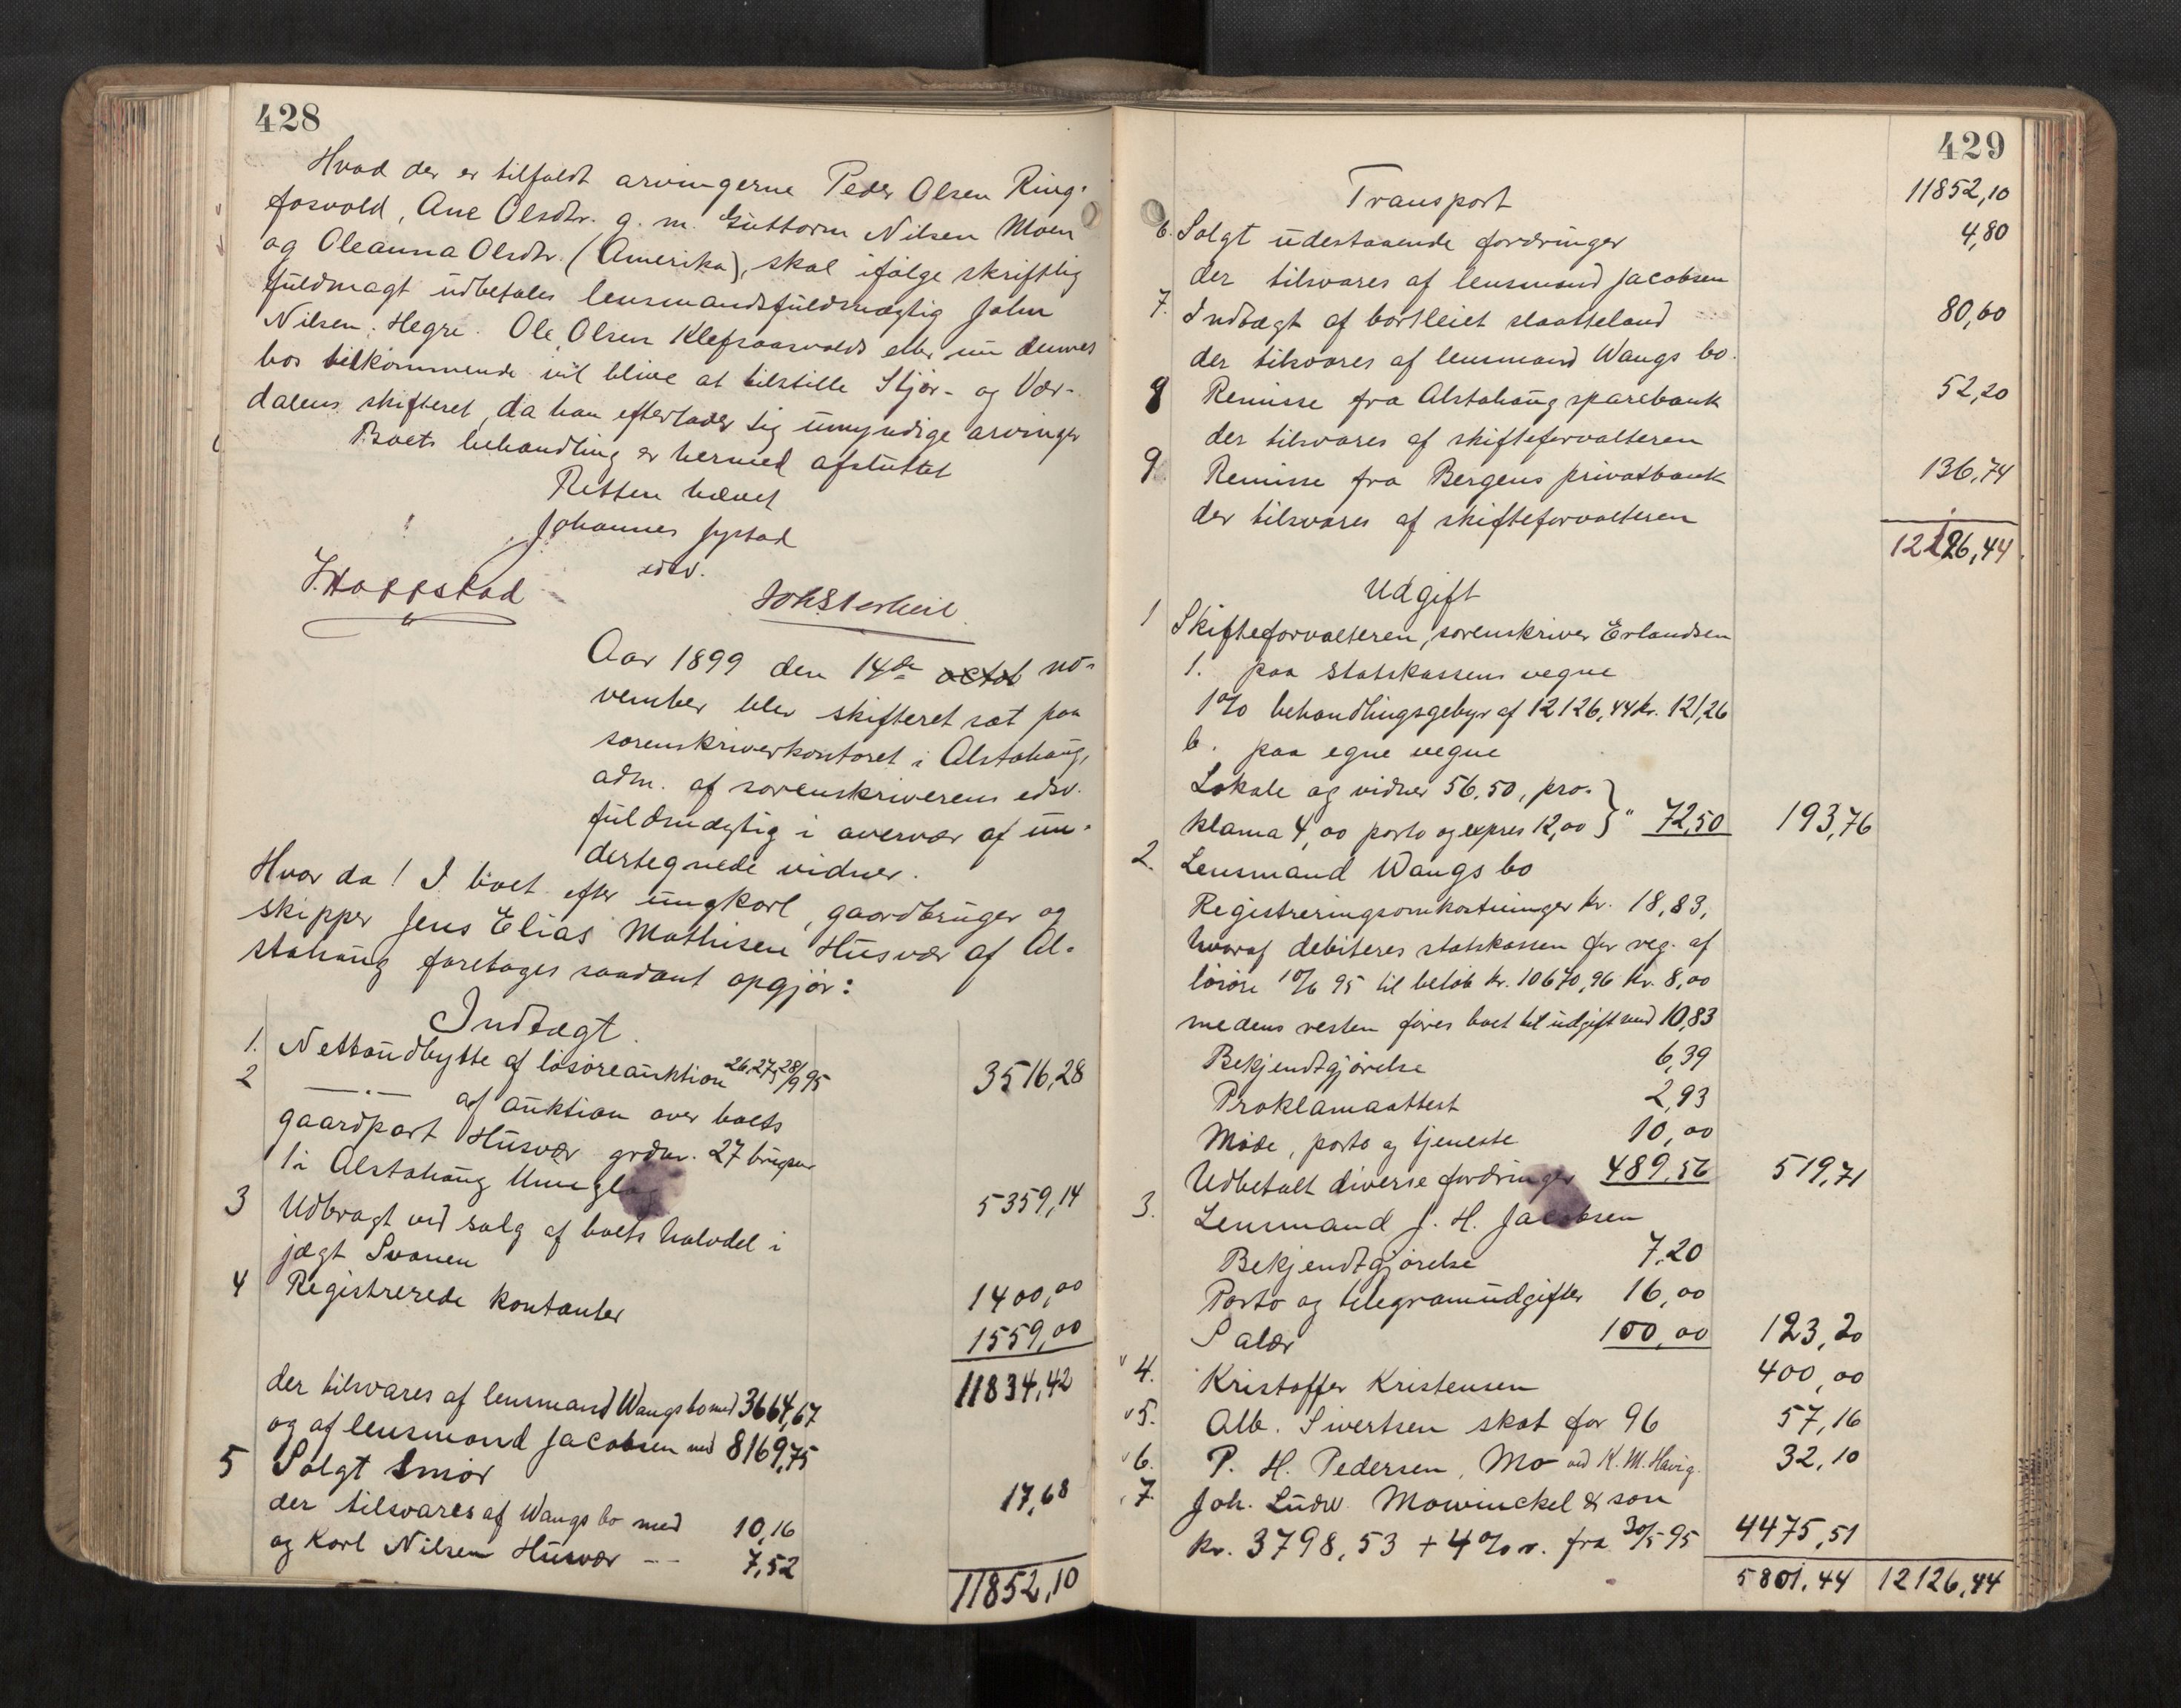 428
Hvad der er tilfaldt arvingerne Peder Olsen Ring-
fosvold, Ane Olsdtr. g. m. Guttorm Nilsen Moen
og Oleanna Olsdtr. (Amerika), skal ifølge skriftlig
fuldmagt udbetales lensmandsfuldmægtig John
Nilsen, Hegre. Ole Olsen Klefsaasvolds eller nu dennes
bos vilkommende vil blive at tilstille Stjør- og Vær-
dalens skifteret, da han efterlader sig umyndige arvinger
Boets behandling er hermed afsluttet
Retten hævet
Johannes Jystad
edsv.
Aar 1899 den 14de octob no-
vember blev skifteret sat paa
sorenskriverkontoret i Alstahaug,
adm. af sorenskriverens edsv.
fuldmægtig i overvær af un-
dertegnede vidner.
Hvor da! I boet efter ungkarl, gaardbruger og
skipper Jens Elias Mathisen Husvær af Al-
stahaug foretages saadant opgjør:
Indtægt
1. Nettoudbytte af løsøreauktion 26,27,28/9 95 3516,28
2 —"— af auktion over boets
gaardpart Husvær grdnr. 27 brugsnr
1 i Alstahaug thinglag 5359,14
3 Udbragt ved salg af boets halvdel i
jægt Svanen 1400,00
4 Registrerede kontanter 1559,00
11834,42
der tilsvares af lensmand Wangs bo med 3664,67
og af lensmand Jacobsen med 8169,75
5 Solgt smør 17,68
der tilsvares af Wangs bo med 10,16
og Karl Nilsen Husvær -- 7,52
11852,10
429
Transport 11852,10
6. Solgt udestaaende fordringer 4,80
der tilsvares af lensmand Jacobsen
7. Indtægt af bortleiet slaatteland 80,60
der tilsvares af lensmand Wangs bo.
8 Remisse fra Alstahaug sparebank 52,20
der tilsvares af skifteforvalteren
9 Remisse fra Bergens privatbank 136,74
der tilsvares af skifteforvalteren
12126,44
Udgift
1 Skifteforvalteren, sorenskriver Erlandsen
1. paa statskassens vegne
1% behandlingsgebyr af 12126,44 kr. 121,26
b. paa egne vegne
Lokale og vidner 56,50, pro-
klama 4,00 porto og expres 12,00 } " 72,50 193,76
2. Lensmand Wangs bo
Registreringsomkostninger kr. 18,83,
hvoraf debiteres statskassen for reg. af
løsøre 10/6 95 til beløb kr. 10670,96 kr. 8,00
medens resten føres boet til udgift med 10,83
Bekjendtgjørelse 6,39
Proklamaattest 2,93
Møde, porto og tjeneste 10,00
Udbetalt diverse fordringer 489,56 519,71
3. Lensmand J. H. Jacobsen
Bekjendtgjørelse 7,20
Porto og telegramudgifter 16,00
Salær 100,00 123,20
4. Kristoffer Kristensen 400,00
5. Alb. Sivertsen skat for 96 57,16
6. P. H. Pedersen, Mo ved K. M. Havig. 32,10
7 Joh. Ludw. Mowinckel & søn
kr. 3798,53 + 4% r. fra 30/5 95 4475,51
5801,44 12126,44